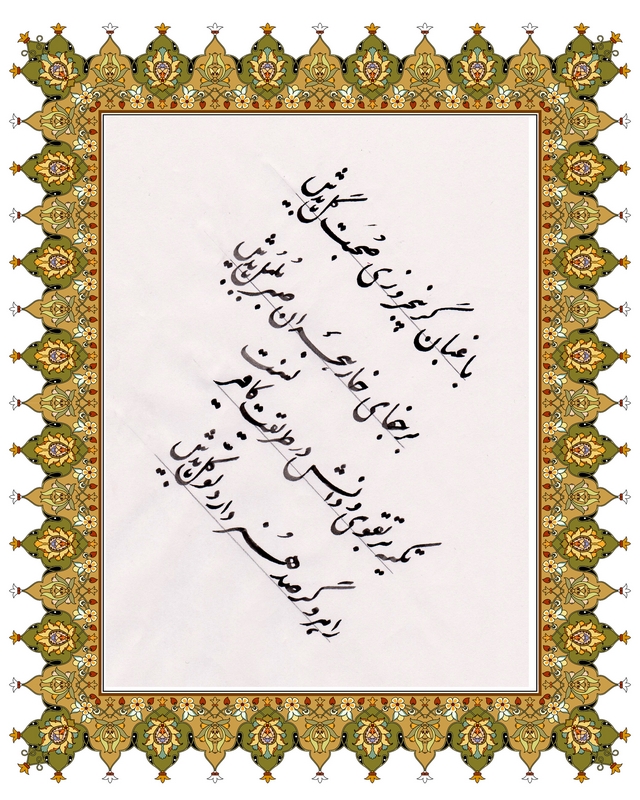 باغبان گر پنجروزی صحبت گل بایدش
بر جفای خار هجران صبر بلبل بایدش
تکیه بر تقوی و دانش در طریقت کافریست
راهرو گر صد هنر دارد توکل بایدش